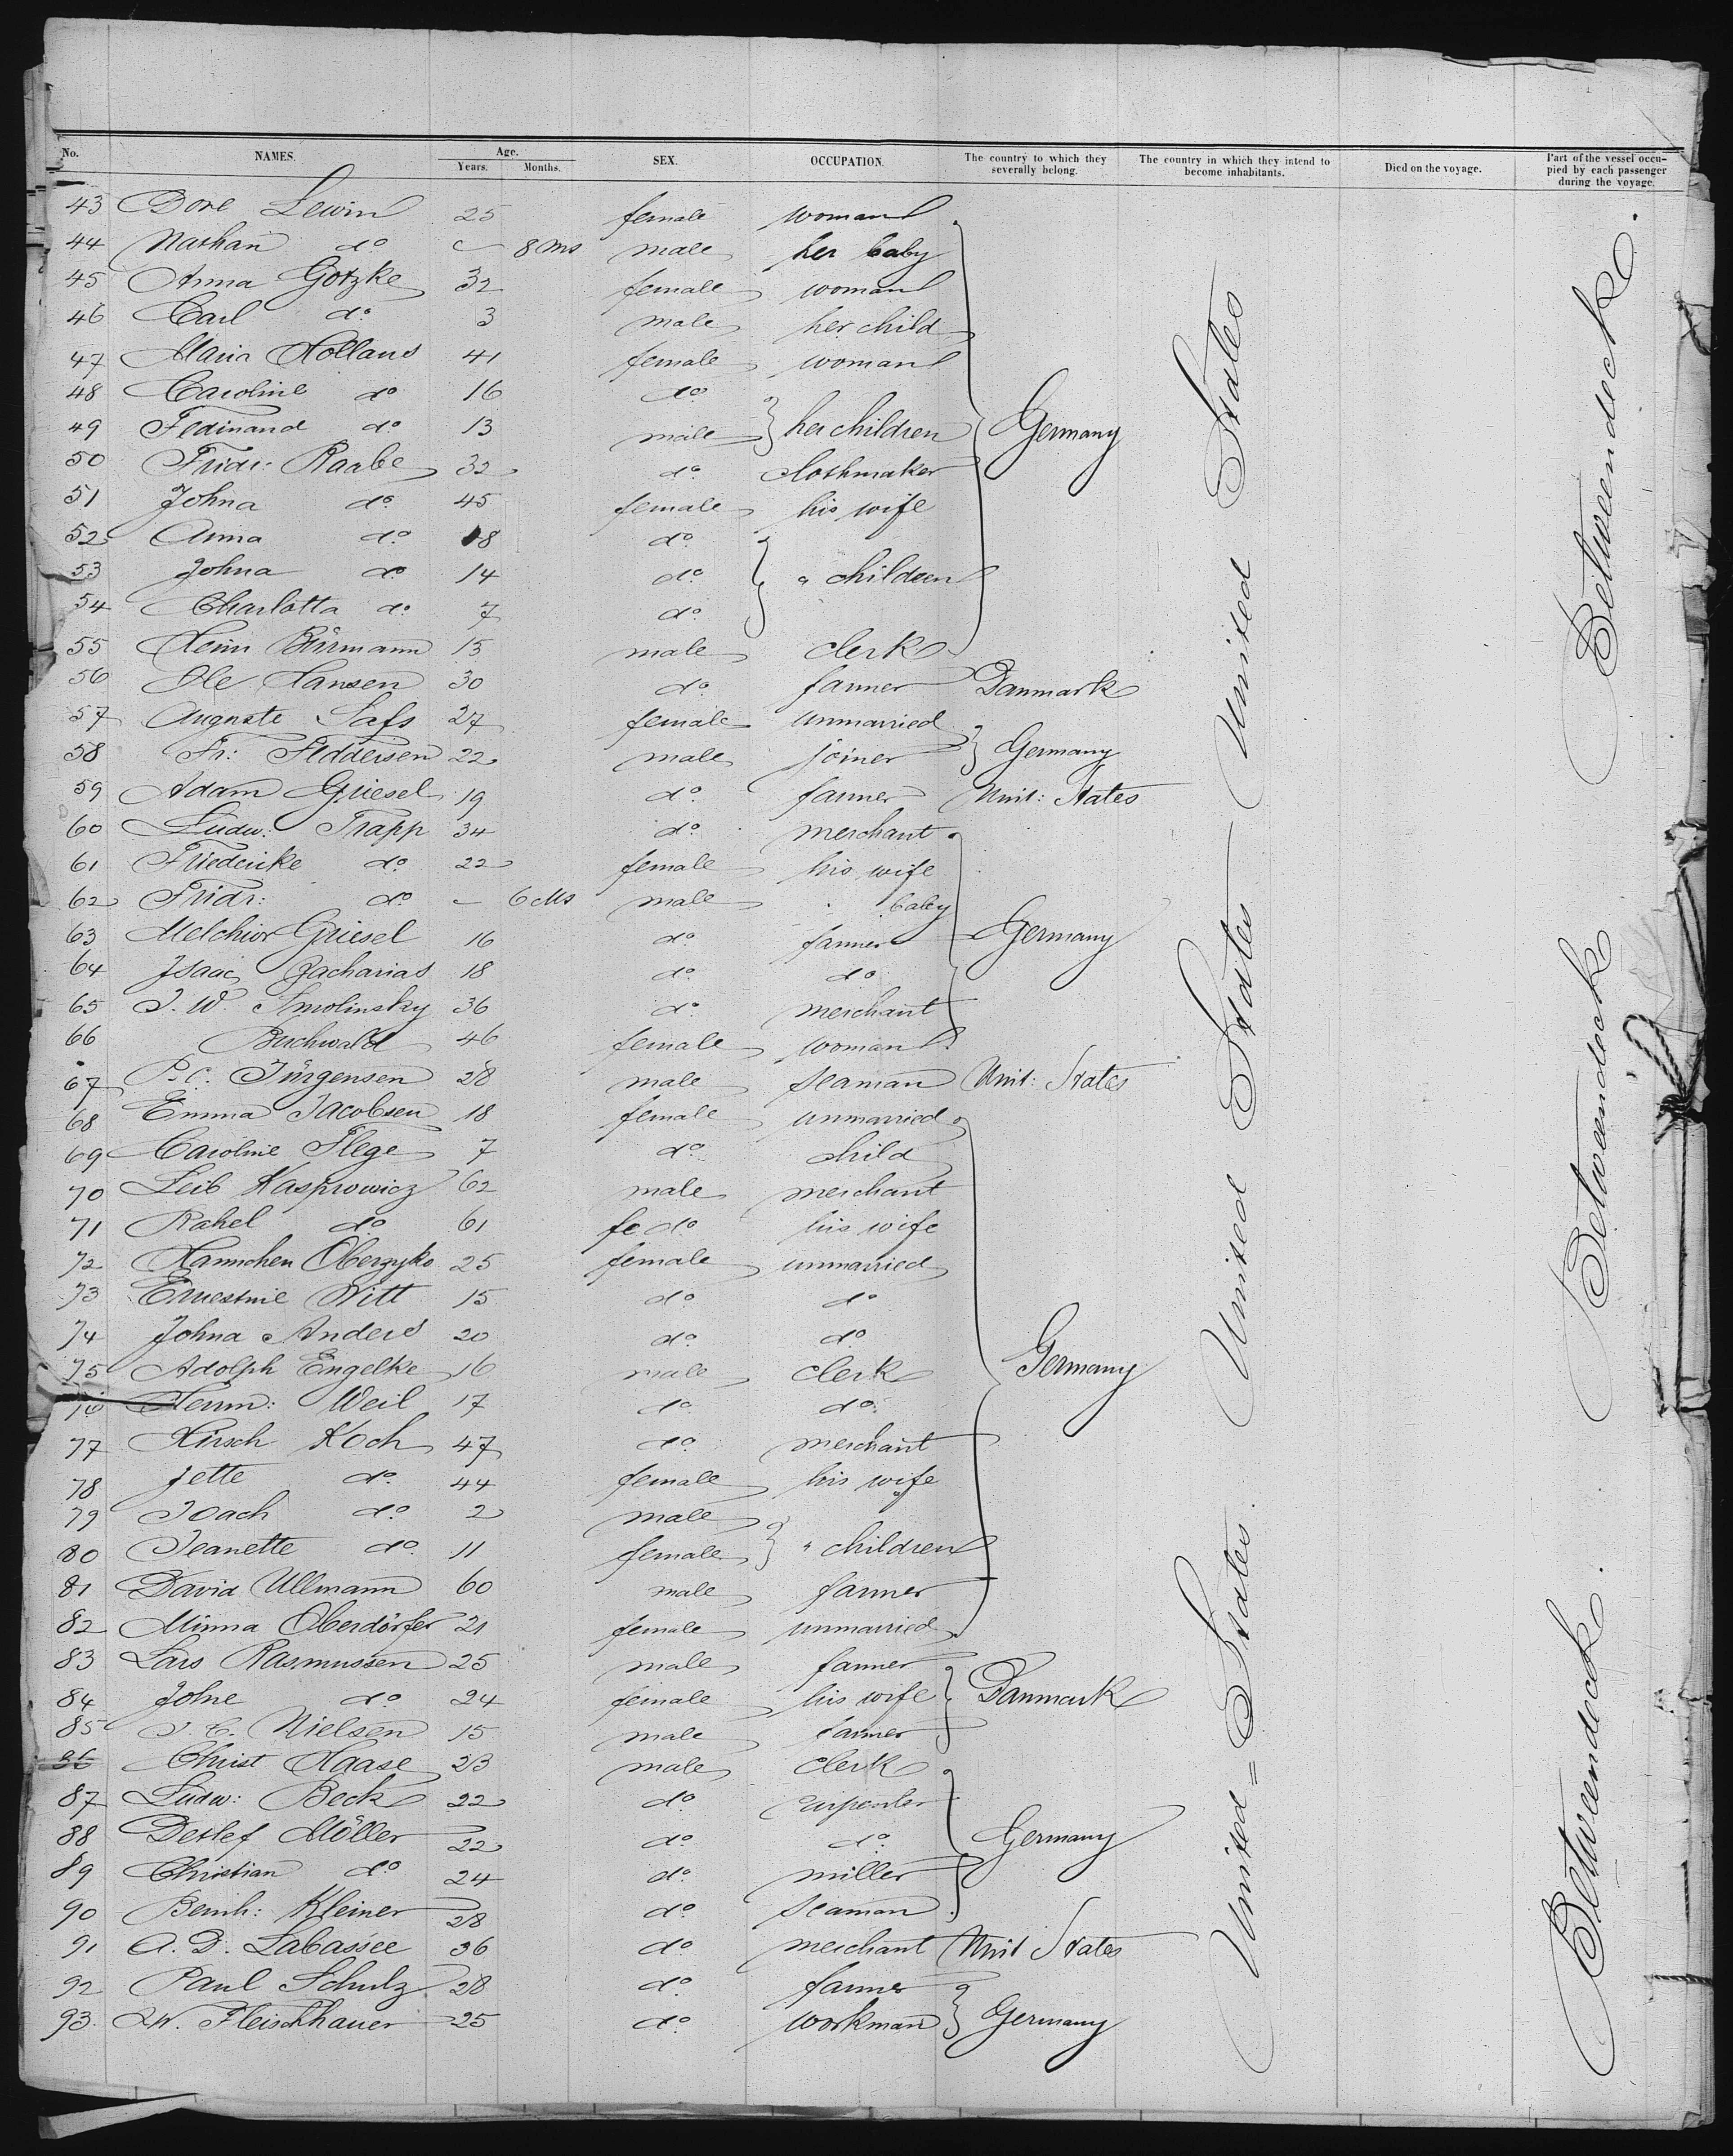 No. NAMES. Age. Years. Months. SEX. OCCUPATION. The country to which they severally belong. The country in which they intend to become inhabitants. Died on the voyage. Part of the vessel occupied by each passenger during the voyage.
43 Dore Lewin 25 female woman
44 Nathan do 8 Ms male her baby
45 Anna Gotzke 32 female woman
46 Carl do 3 male her child
47 Maria Hollans 41 female woman
48 Caroline do 16 do
49 Fedinand do 13 male } her children Germany
50 Fridr: Raabe 32 do clothmaker
51 Johna do 45 female his wife
52 Anna do 18 do
53 Johna do 14 do } " children
54 Charlotta do 7 do
55 Heinr Birmann 15 male clerk
56 Ole Hansen 30 do farmer Danmark
57 Auguste Safs 27 female unmarried
58 Fr: Feddersen 22 male joiner } Germany
59 Adam Griesel 19 do farmer Unit: States
60 Ludw: Trapp 34 do merchant
61 Friedericke do 22 female his wife
62 Fridr: do 6 Ms male " baby
63 Melchior Griesel 16 do farmer Germany
64 Isaac Zacharias 18 do do
65 J. W. Smolinsky 36 do merchant
66 Buchwald 46 female woman
67 P. C. Jürgensen 28 male seaman Unit: States
68 Emma Jacobsen 18 female unmarried
69 Caroline Flege 7 do child
70 Leib Kasprowicz 62 male merchant
71 Rahel do 61 fe do his wife
72 Hannchen Oberzyko 25 female unmarried
73 Ernestine Witt 15 do do
74 Johna Anders 20 do do
75 Adolph Engelke 16 male clerk Germany
76 Herm: Weil 17 do do
77 Hirsch Koch 47 do merchant
78 Jette do 44 female his wife
79 Joach do 2 male
80 Jeanette do 11 female } " children
81 David Ullmann 60 male farmer
82 Minna Oberdörfer 21 female unmarried
83 Lars Rasmussen 25 male farmer
84 Johne do 24 female his wife Danmark
85 J. C. Nielsen 15 male farmer
86 Christ Haase 23 male clerk
87 Ludw: Beck 22 do carpenter
88 Detlef Möller 22 do do Germany
89 Christian do 24 do miller
90 Bernh: Kleiner 28 do seaman
91 A. D. Labassée 36 do merchant Unit States
92 Paul Schulz 28 do farmer
93 Fleischhauer 25 do workman } Germany
United States
United States
United = States
Betweendeck
Betweendeck
Betweendeck